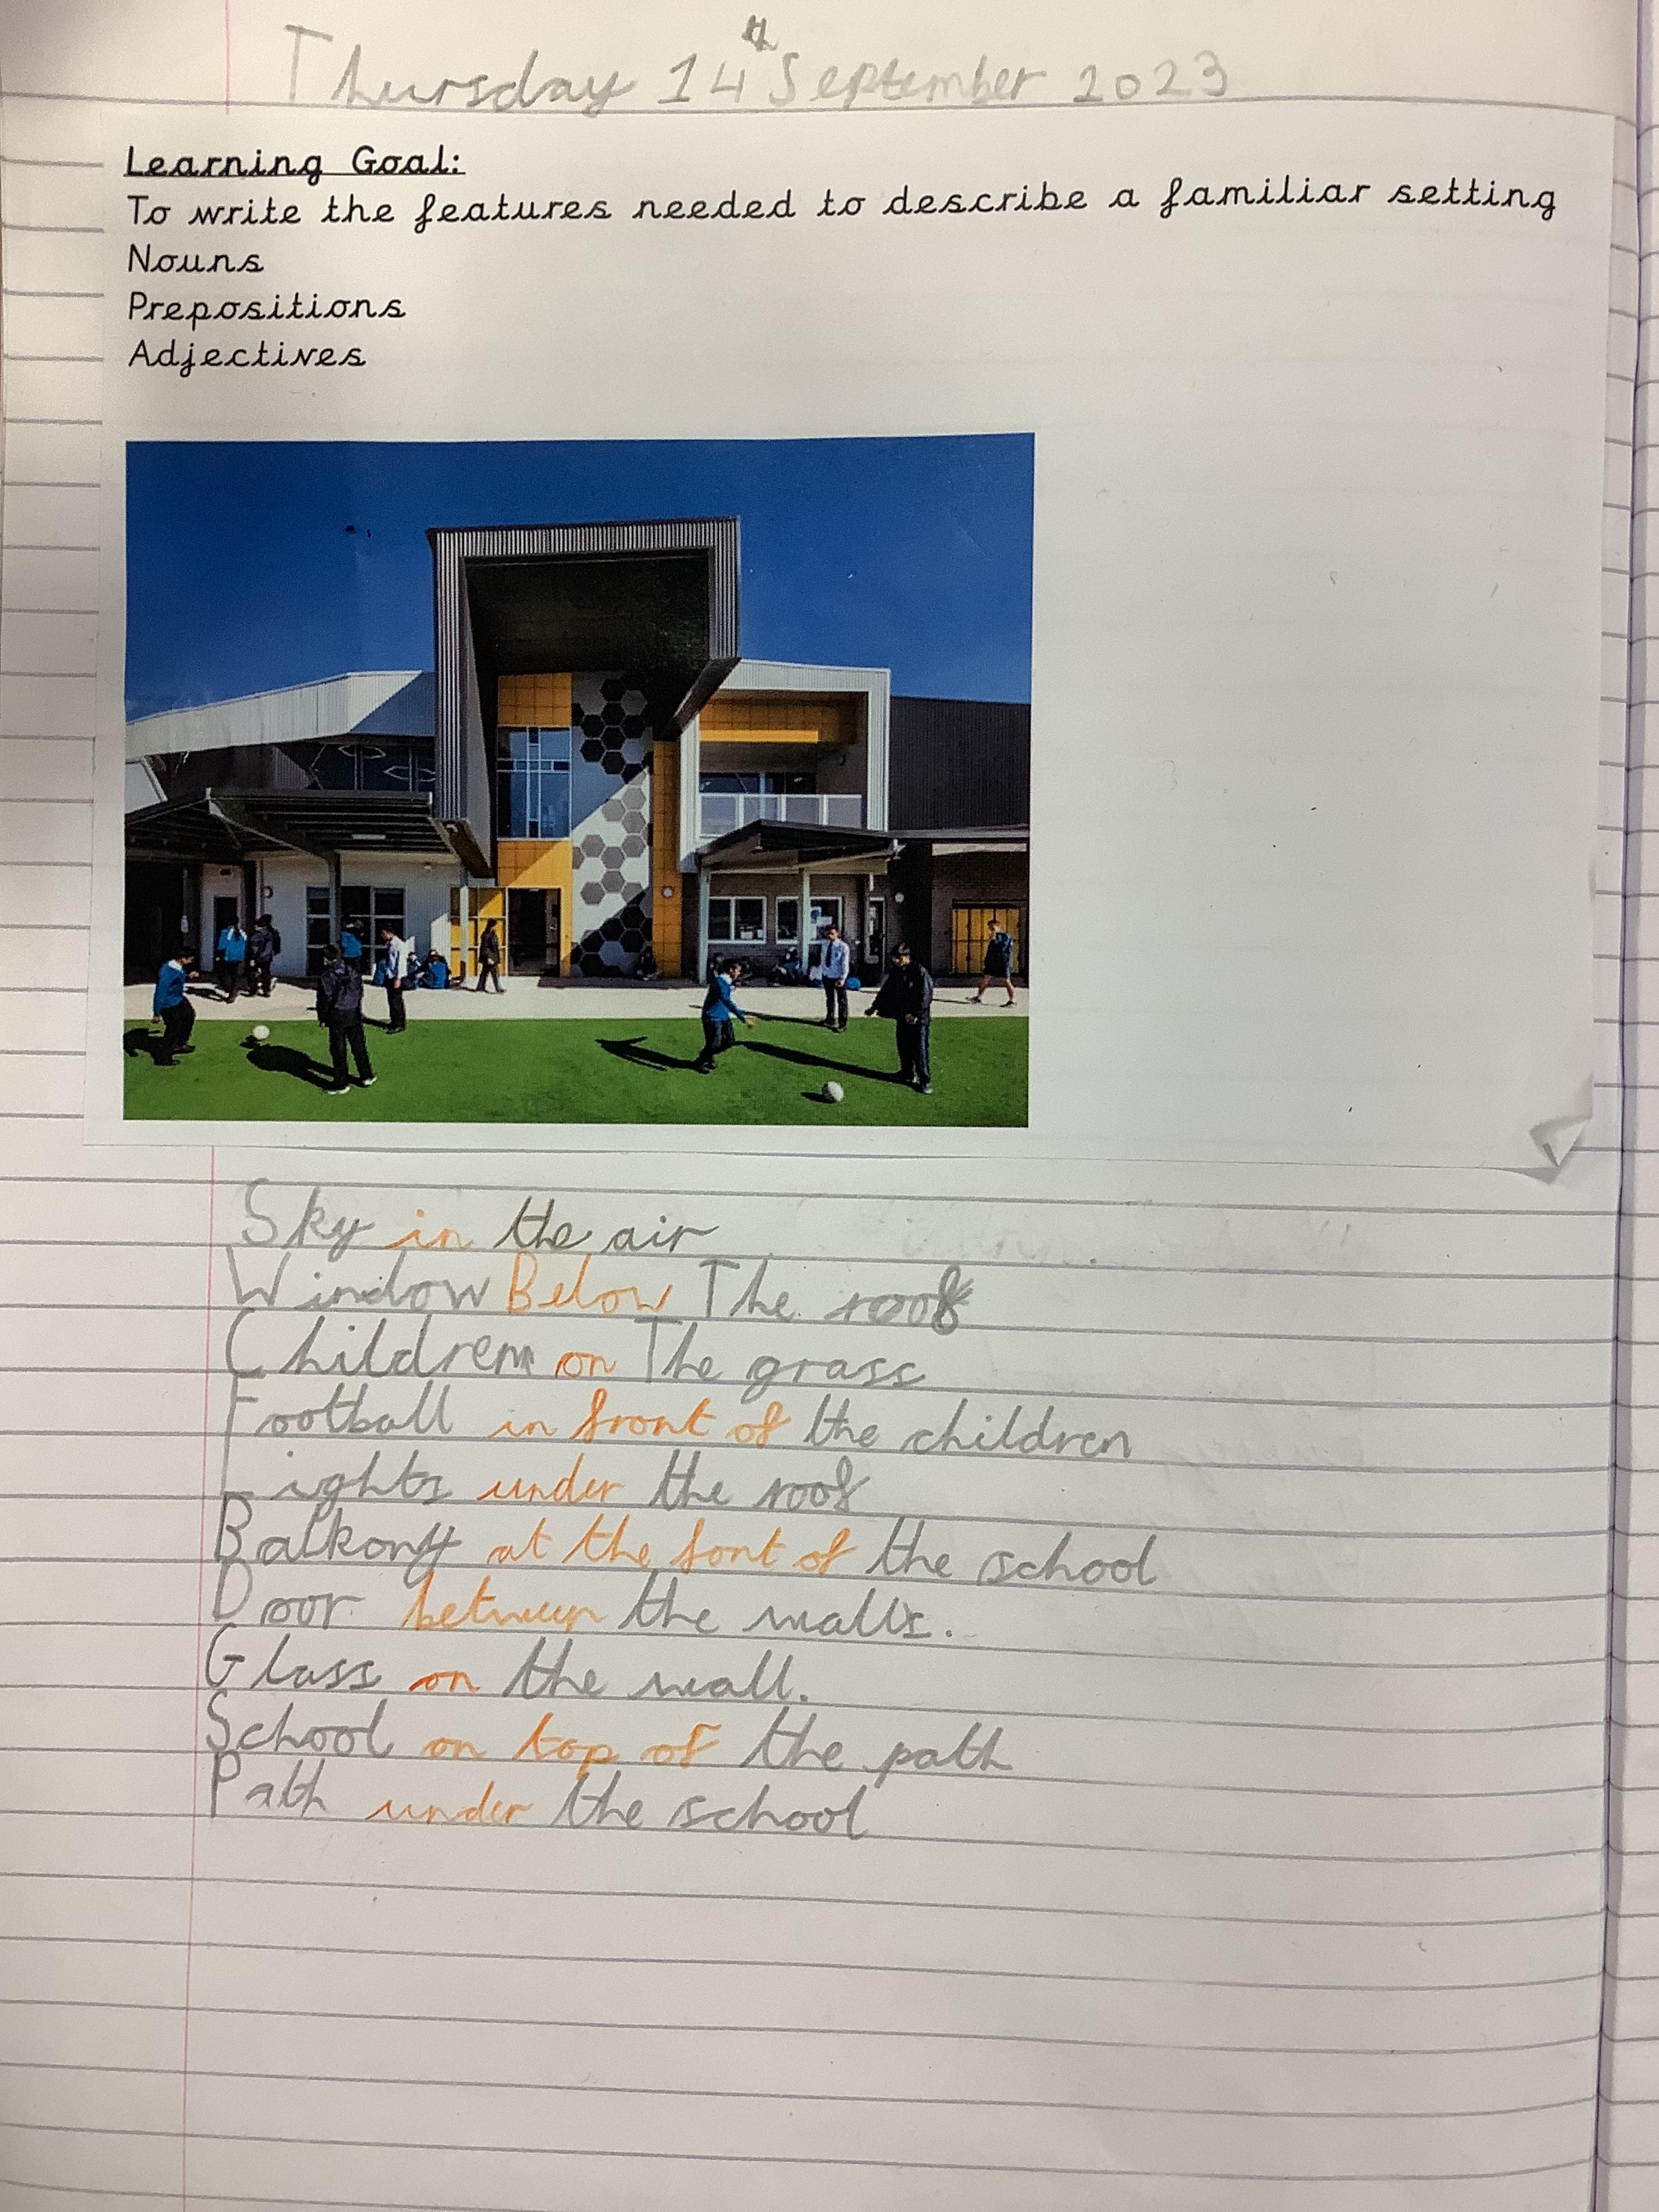 Thursday 14th September 2023
Learning Goal:
To write the features needed to describe a familiar setting
Nouns
Prepositions
Adjectives
Sky in the air
Window Below The roof
Children on The grass
Football in front of the children
Lights under the roof
Balkony at the font of the school
Door between the walls.
Glass on the wall.
School on top of the path
Path under the school